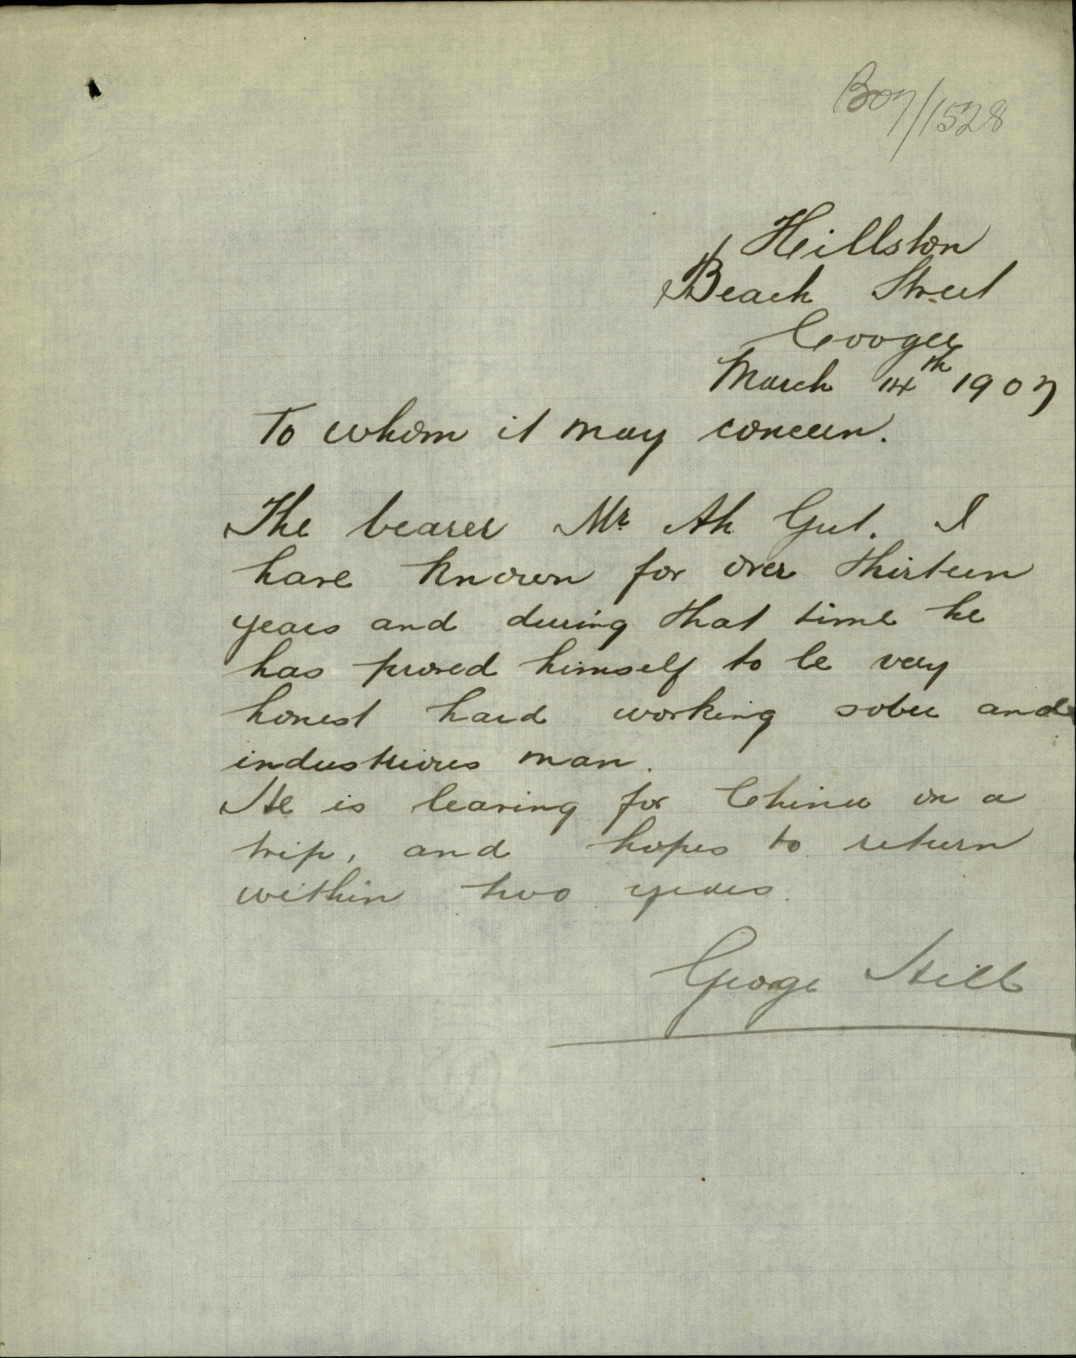 B07/1528
Hillston
Beach Street
Coogee
March 14th 1907
To whom it may concern.
The bearer Mr Ah Gut. I
have known for over thirteen
years and during that time he
has proved himself to be very
honest hard working sober and
industrious man.
He is leaving for China on a
trip, and hopes to return
within two years.
George Hill